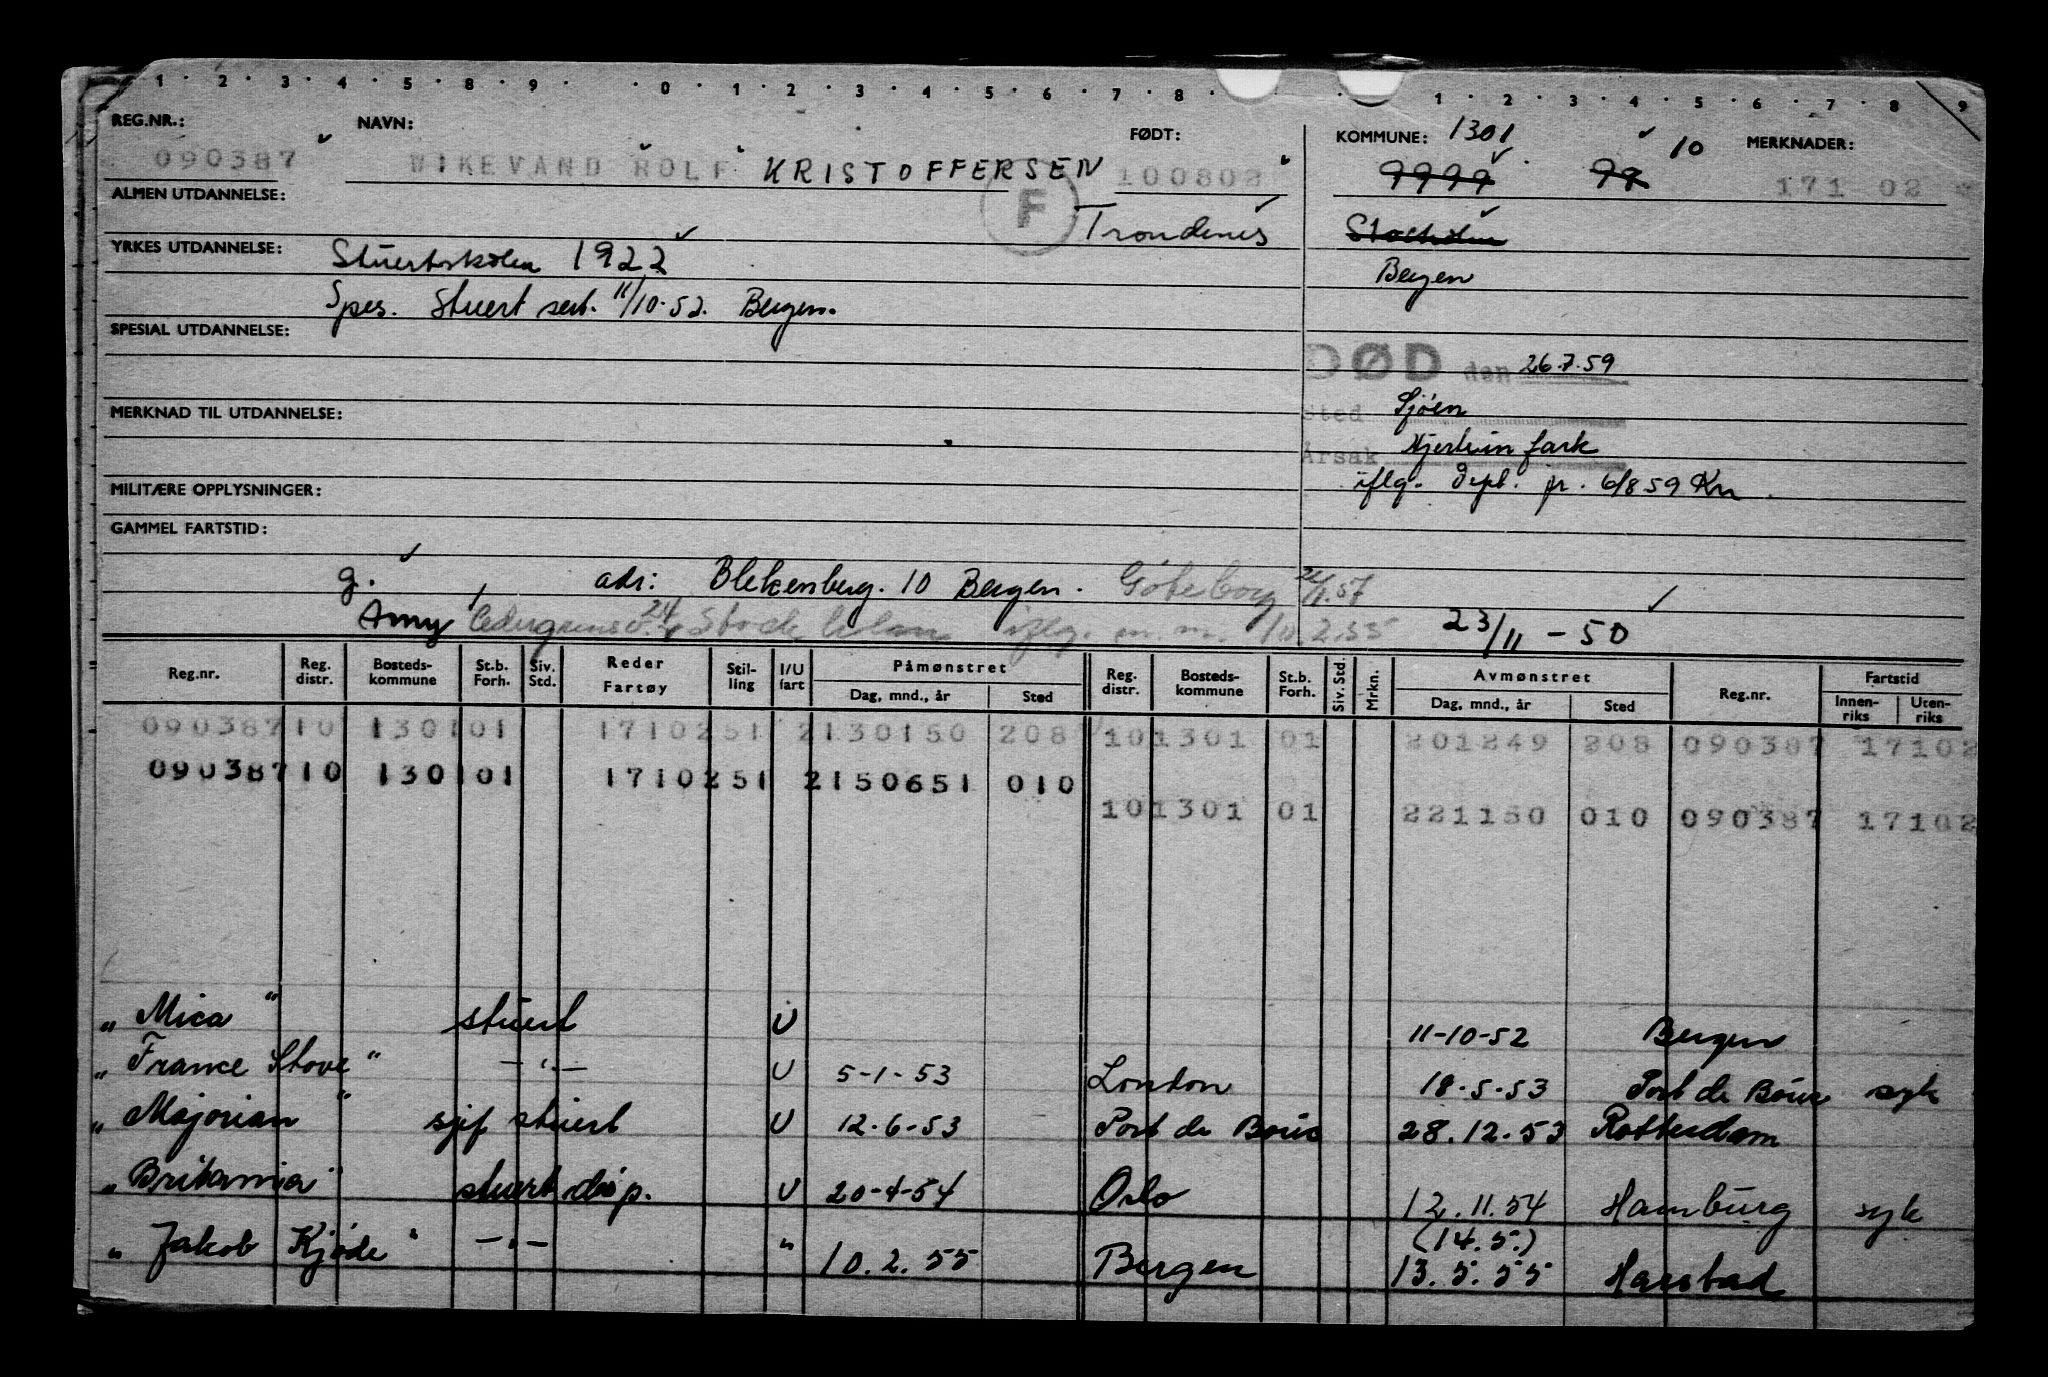 1 2 3 4 5 6 7 8 9 0 1 2 3 4 5 6 7 8 1 2 3 4 5 6 7 8 9
REG.NR.: NAVN: FØDT: KOMMUNE: 1301 10 MERKNADER:
090387 WIKEVAND ROLF KRISTOFFERSEN 100802 9999 99 171 02
F
ALMEN UTDANNELSE: Trondenes Stockholm
YRKES UTDANNELSE: Stuertskolen 1922 Bergen
Spes. Stuert sert. 11/10-52. Bergen.
SPESIAL UTDANNELSE:
DØD den 26.7.59
MERKNAD TIL UTDANNELSE: Sted Sjøen
Årsak Hjerteinfark
MILITÆRE OPPLYSNINGER: iflg. Dept. pr. 6/8 59 Kr
GAMMEL FARTSTID:
g. adr: Blekenberg. 10 Bergen. Göteborg
Amy 24 Stockholm iflg. m.m. 2.55 23/11-50
Reg.nr. Reg. distr. Bosteds-kommune St.b. Forh. Siv. Std. Reder Fartøy Stil-ling I/U fart Påmønstret Dag, mnd., år Sted Reg. distr. Bosteds-kommune St.b. Forh. Siv. Std. Mrkn. Avmønstret Dag, mnd., år Sted Reg.nr. Fartstid Innen-riks Uten-riks
090387 10 1301 01 1710251 2130150 208 10 1301 01 201249 208 090387 17102
090387 10 1301 01 1710251 2150651 010
10 1301 01 221150 010 090387 17102
„Mica" stuert U 11-10-52 Bergen
„France Stove" —"— U 5-1-53 London 18-5-53 Port de Bouc syk
„Majorian" sjef stuert U 12-6-53 Port de Bouc 28.12.53 Rotterdam
„Britannia" stuert disp. U 20-4-54 Oslo 12.11.54 Hamburg syk
„Jakob Kjøde" —"— " 10.2.55 Bergen (14.5.) 13.5.55 Harstad